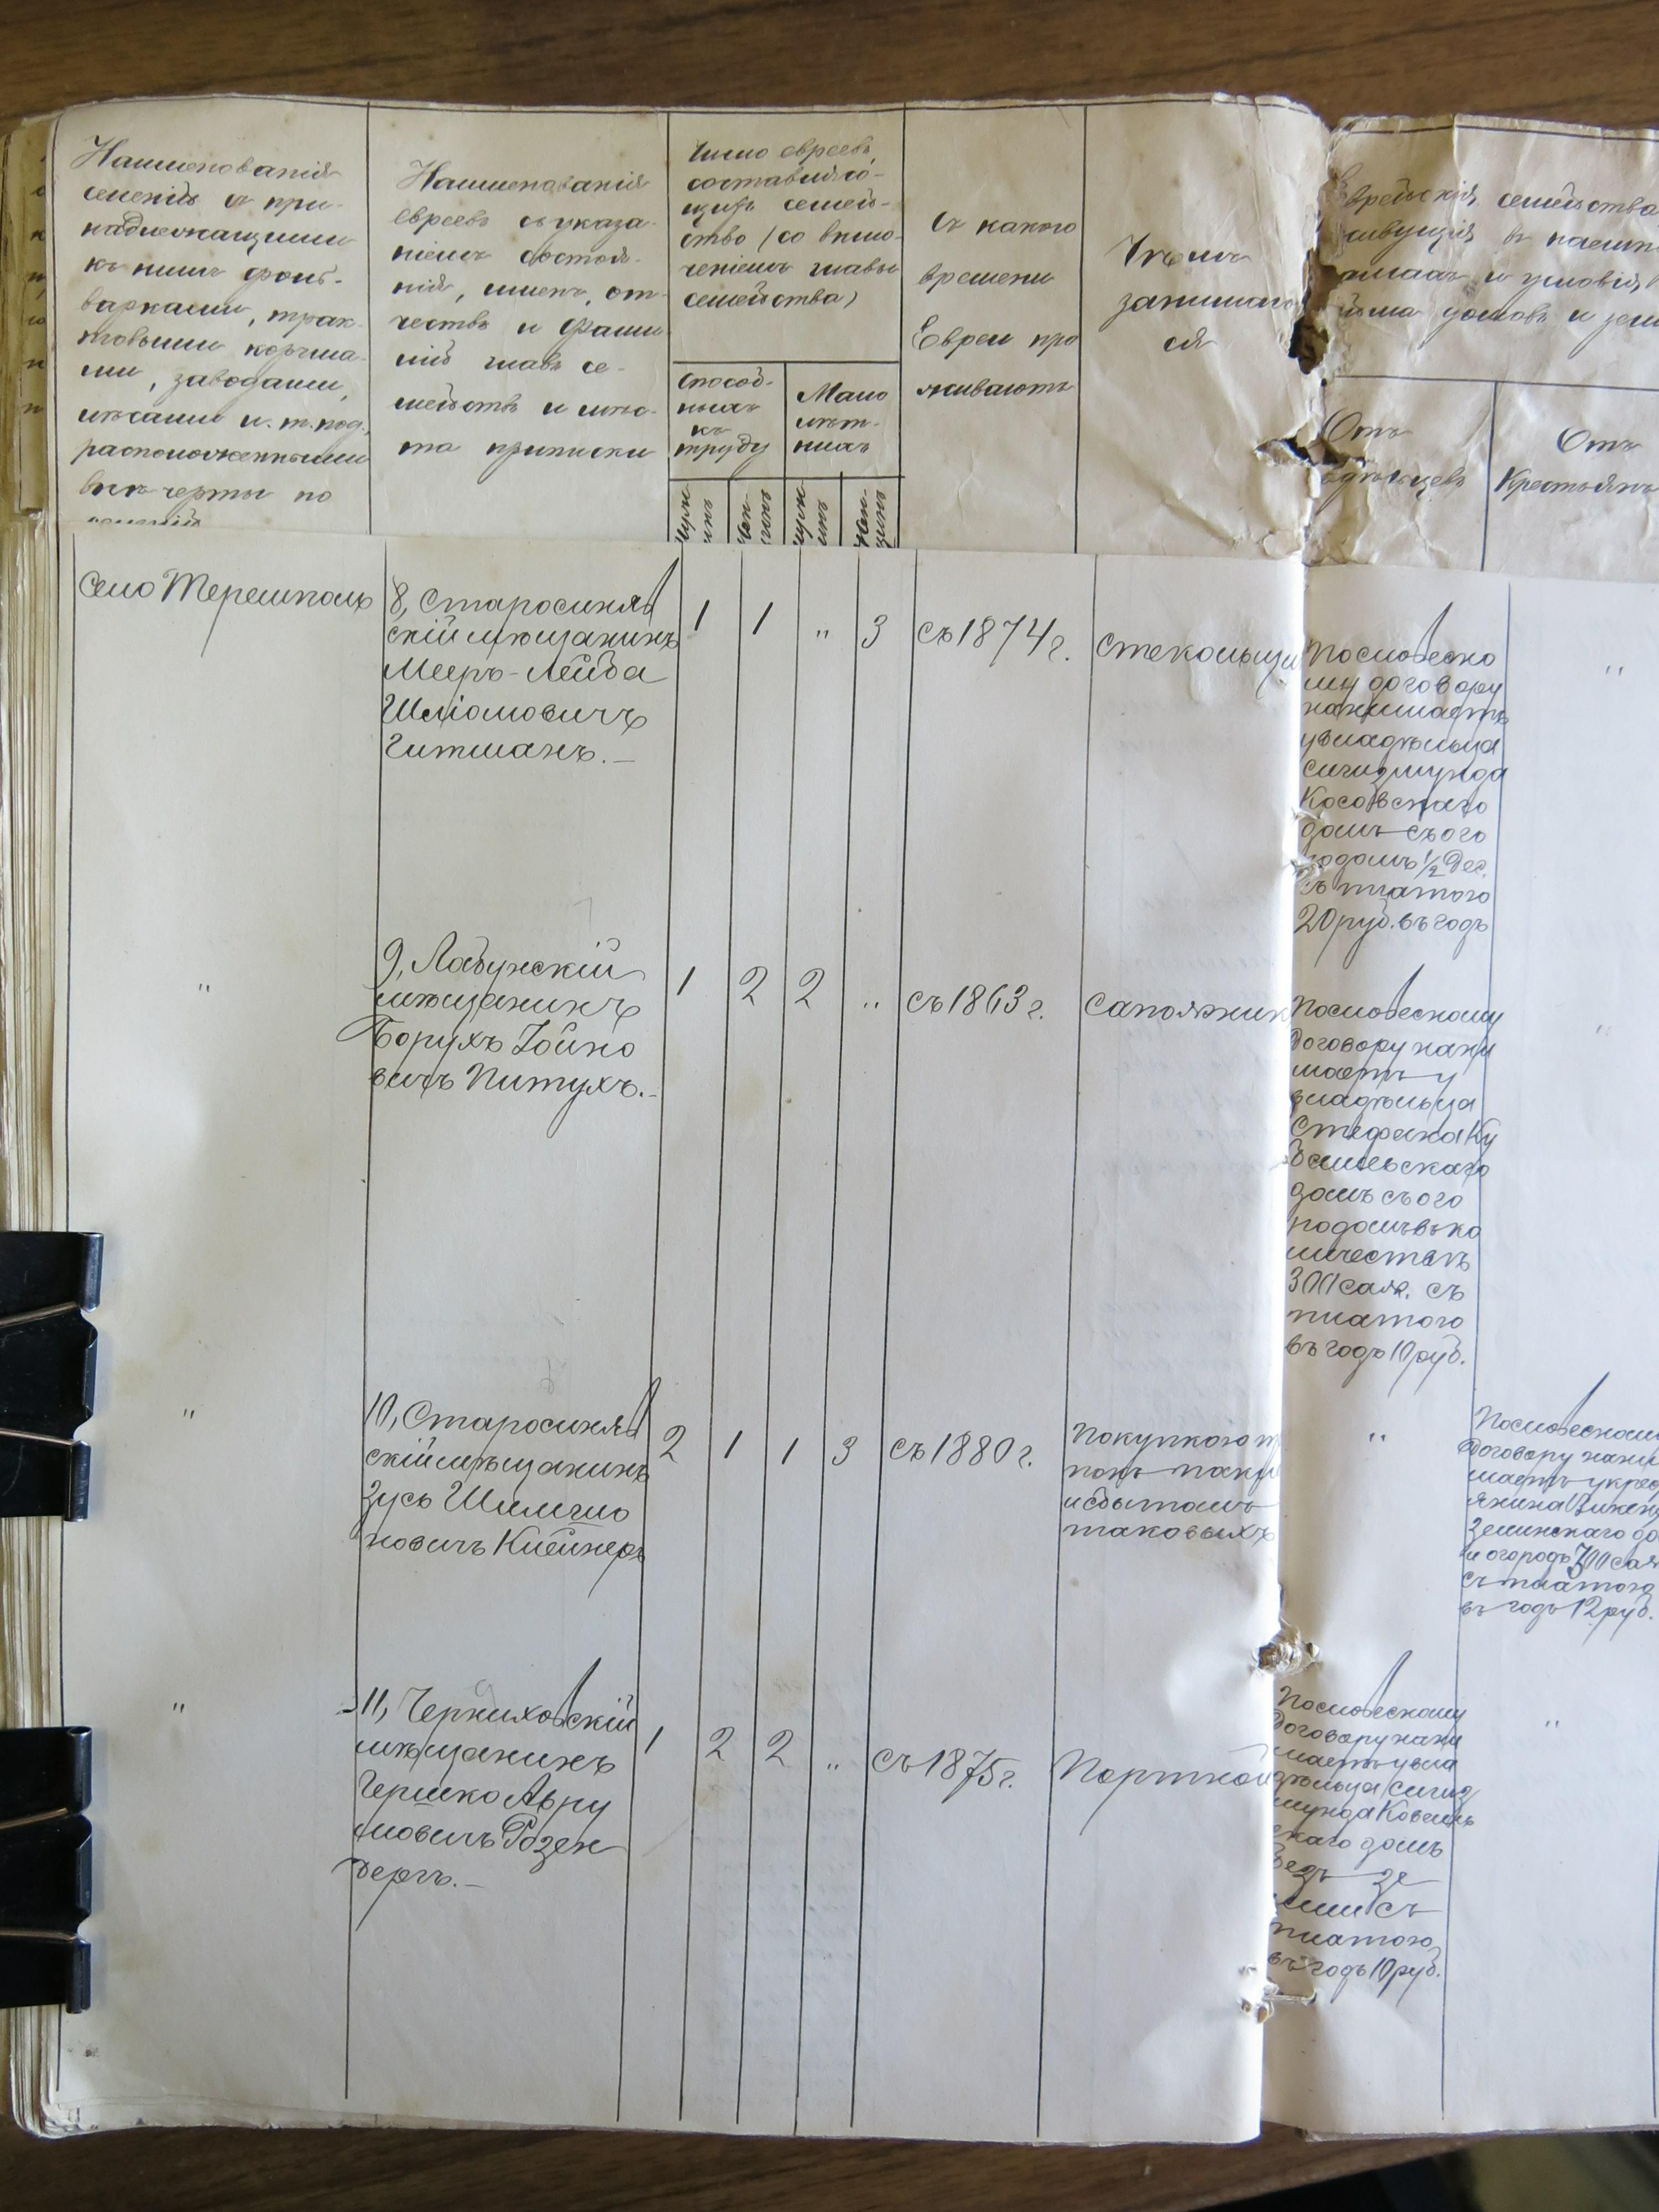 Наименованія
селеній и при-
надлежащими
къ нимъ фоль-
варками, трак-
товыми корчма-
ми, заводами,
лѣсами и. т. под.,
расположенными
внѣ черты по
селеній
Наименованія
евреевъ съ указа-
ніемъ состоя-
нія, именъ, от-
чествъ и Фами
лій главъ се-
мействъ и мѣс-
та приписки
Число евреевъ,
составляю-
щихъ семей-
ство (со вклю-
ченіемъ главы
семейства)
Способ-
ныхъ
къ
труду
Мало
лѣт-
нихъ
Муж
чинъ
Жен
щинъ
Муж
чинъ
Жен
щинъ
Съ какого
времени
Евреи про
живаютъ
Чѣмъ
занимаю
ся
Еврейскія семейства
живущія въ наемн
домахъ и условій
йма домовъ и земл
Отъ
владѣльцевъ
Отъ
Крестьянъ
Село Терешполь
8, Старосиняв
скій мѣщанинъ
Мееръ-Лейба
Шліомовичъ
Гитманъ.—
1 1 " 3
съ 1874 г.
Стекольщи
По словесно
му договору
нанимаетъ
у владѣльца
Сигизмунда
Косовскаго
домъ съ ого
родомъ 1/2 дес.
съ платою
20 руб. въ годъ
"
"
9, Лабунскій
мѣщанинъ
Борухъ Іойно
вичъ Питухъ.-
1 2 2 "
съ 1863 г.
Сапожник
По словесному
договору нани
маетъ у
владѣльца
Стефана Ку
домъ съ ого
родомъ въ ко
личествѣ
300 саж. съ
платою
въ годъ 10 руб.
"
"
10, Старосиняв
скій мѣщанинъ
Зусь Шлемио
новичъ Клейнеръ
2 1 1 3
съ 1880 г.
Покупкою т
и сбытомъ
таковыхъ
"
По словесном
договору нани
маетъ у крес
янина Викен
Зелинскаго до
и огородъ 300 саж
съ платою
въ годъ 12 руб.
"
11, Черниховскій
мѣщанинъ
Гершко Авру
мовичъ Розен
бергъ.—
1 2 2 "
съ 1875 г.
Портной
По словесному
договору нани
маетъ у вла
дѣльца Сигиз
мунда Ковал
скаго домъ
безъ зе
мли съ
платою
въ годъ 10 руб.
"